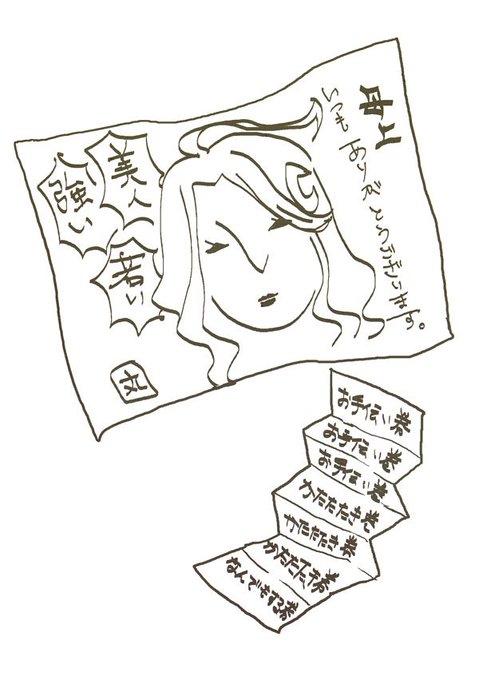 母上
いつもありがとうございます。
美人
若い
強い
お手伝い券
お手伝い巻
お手伝い巻
かたたたき巻
かたたたき券
かたたたき券
なんでもする券